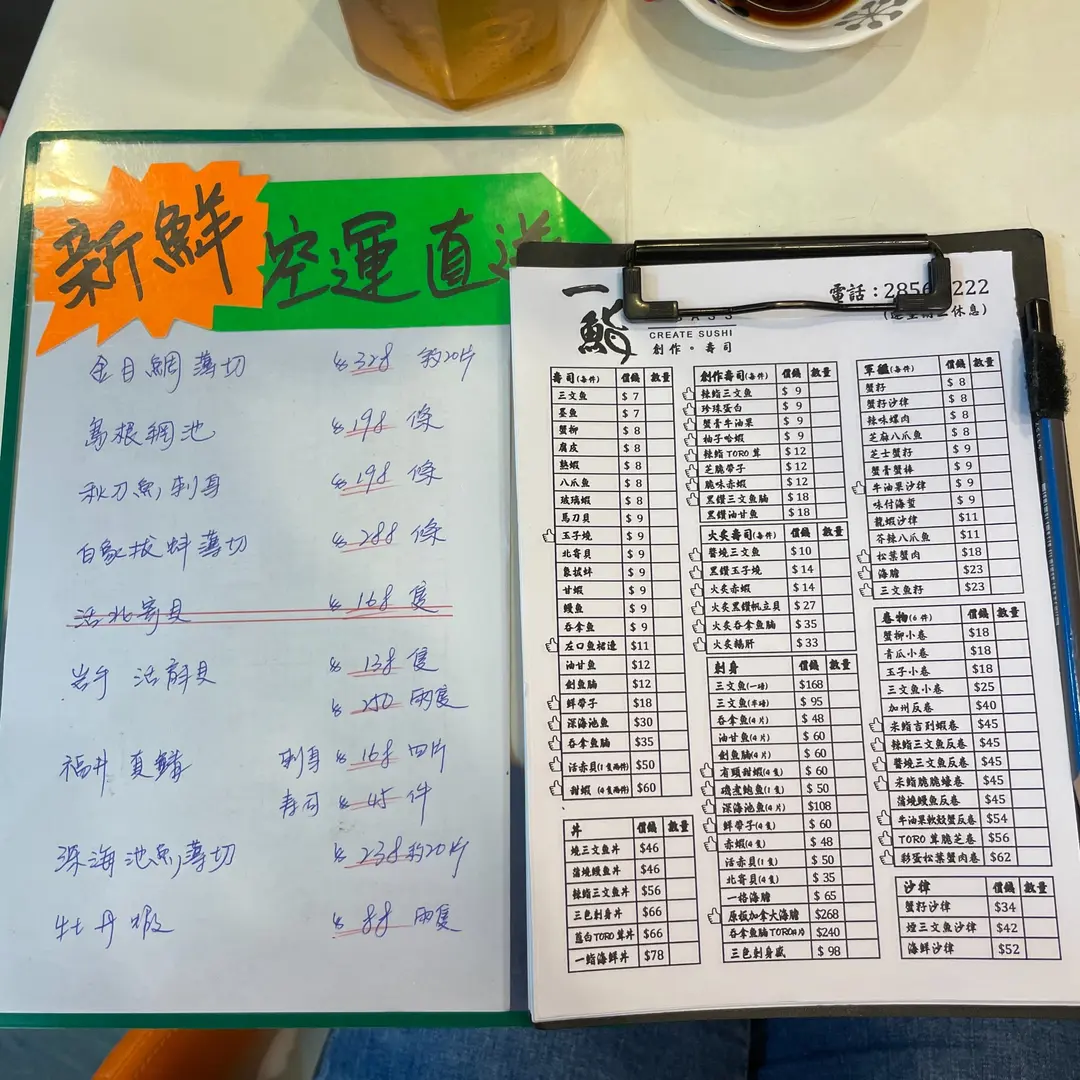 新鮮 空運直送
金目鯛薄切 $328 約20片
島根網池 $198 條
秋刀魚刺身 $198 條
象拔蚌薄切 $288 條
活北寄貝 $168 隻
岩手 活 貝 $138 隻
$250 兩隻
福井 真 刺身 $168 四片
壽司 $45 件
深海池魚薄切 $238 約20片
牡丹蝦 $88 兩隻
一鮨
CREATE SUSHI
創作。壽司
電話:285 222
休息)
壽司(每件) 價錢 數量
三文魚 $ 7
墨魚 $ 7
蟹柳 $ 8
腐皮 $ 8
熟蝦 $ 8
八爪魚 $ 8
玻璃蝦 $ 8
馬刀貝 $ 9
玉子燒 $ 9
北寄貝 $ 9
象拔蚌 $ 9
甘蝦 $ 9
鰻魚 $ 9
吞拿魚 $ 9
左口魚裙邊 $11
油甘魚 $12
劍魚腩 $12
鮮帶子 $18
深海池魚 $30
吞拿魚腩 $35
活赤貝(1隻兩件) $50
甜蝦 (4隻兩件) $60
丼 價錢 數量
燒三文魚丼 $46
蒲燒鰻魚丼 $46
辣鮨三文魚丼 $56
三色刺身丼 $66
蔥白TORO茸丼 $66
一鮨海鮮丼 $78
創作壽司(每件) 價錢 數量
辣鮨三文魚 $ 9
珍珠蛋白 $ 9
蟹膏牛油果 $ 9
柚子哈蝦 $ 9
辣鮨TORO茸 $12
芝脆帶子 $12
脆味赤蝦 $12
黑鑽三文魚腩 $18
黑鑽油甘魚 $18
火炙壽司(每件) 價錢 數量
醬燒三文魚 $10
黑鑽玉子燒 $14
火炙赤蝦 $14
火炙黑鑽帆立貝 $27
火炙吞拿魚腩 $35
火炙鵝肝 $33
刺身 價錢 數量
三文魚(一磅) $168
三文魚(半磅) $ 95
吞拿魚(4片) $ 48
油甘魚(4片) $ 60
劍魚腩(4片) $ 60
有頭甜蝦(4隻) $ 60
磯煮鮑魚(1隻) $ 50
深海池魚(4片) $108
鮮帶子(4隻) $ 60
赤蝦(4隻) $ 48
活赤貝(1隻) $ 50
北寄貝(4隻) $ 35
一格海膽 $ 65
原板加拿大海膽 $268
吞拿魚腩TORO(4片) $240
三色刺身盛 $ 98
軍艦(每件) 價錢 數量
蟹籽 $ 8
蟹籽沙律 $ 8
辣味螺肉 $ 8
芝麻八爪魚 $ 8
芝士蟹籽 $ 9
蟹膏蟹棒 $ 9
牛油果沙律 $ 9
味付海蜇 $ 9
龍蝦沙律 $11
芥辣八爪魚 $11
松葉蟹肉 $18
海膽 $23
三文魚籽 $23
卷物(6件) 價錢 數量
蟹柳小卷 $18
青瓜小卷 $18
玉子小卷 $18
三文魚小卷 $25
加州反卷 $40
朱鮨吉列蝦卷 $45
辣鮨三文魚反卷 $45
醬燒三文魚反卷 $45
朱鮨脆脆蠔卷 $45
蒲燒鰻魚反卷 $45
牛油果軟殼蟹反卷 $54
TORO茸脆芝卷 $56
彩蛋松葉蟹肉卷 $62
沙律 價錢 數量
蟹籽沙律 $34
煙三文魚沙律 $42
海鮮沙律 $52